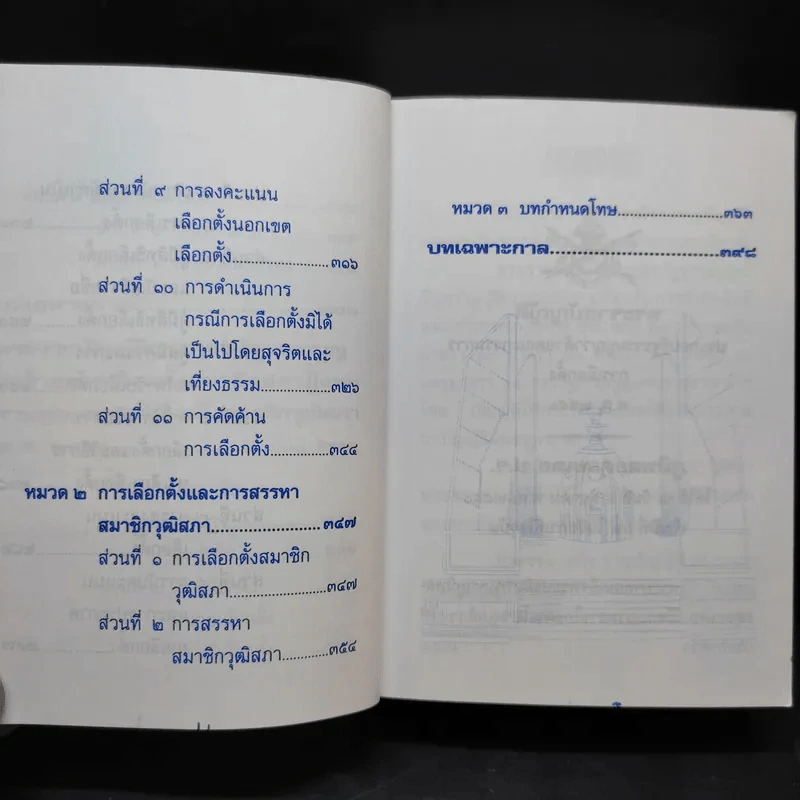 ส่วนที่ ๙ การลงคะแนน
เลือกตั้งนอกเขต
เลือกตั้ง......................๓๑๖
ส่วนที่ ๑๐ การดำเนินการ
กรณีการเลือกตั้งมิได้
เป็นไปโดยสุจริตและ
เที่ยงธรรม................๓๒๖
ส่วนที่ ๑๑ การคัดค้าน
การเลือกตั้ง.............๓๔๔
หมวด ๒ การเลือกตั้งและการสรรหา
สมาชิกวุฒิสภา......................๓๔๗
ส่วนที่ ๑ การเลือกตั้งสมาชิก
วุฒิสภา.......................๓๔๗
ส่วนที่ ๒ การสรรหา
สมาชิกวุฒิสภา............๓๕๔
หมวด ๓ บทกำหนดโทษ.....................๓๖๓
บทเฉพาะกาล.................................๓๙๘